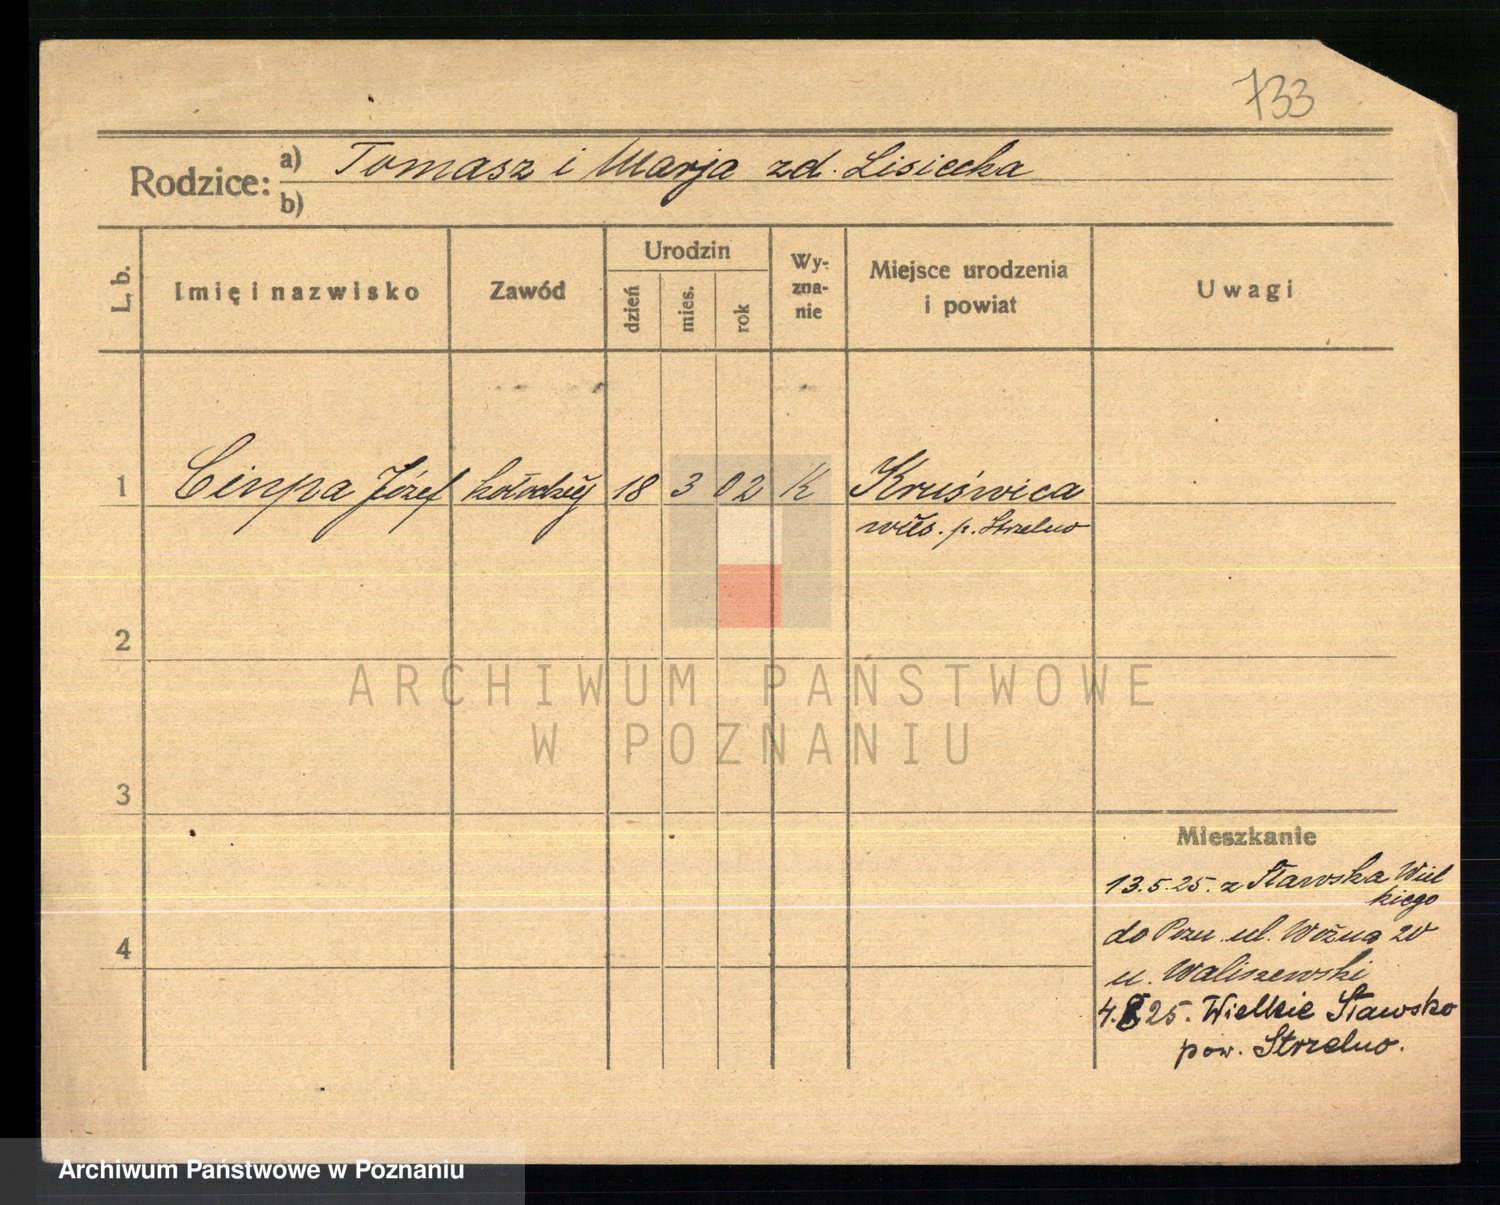 733
Rodzice: a) Tomasz i Marja zd. Lisiecka
b)
L. b. Imię i nazwisko Zawód Urodzin dzień mies. rok Wyznanie Miejsce urodzenia i powiat Uwagi
1 Cinpa Józef kołodziej 18 3 02 K Kruświca
wieś. p. Strzelno
2
ARCHIWUM PAŃSTWOWE
W POZNANIU
3
Mieszkanie
13.5.25. z Stawska Wiel
kiego
do Pozn. ul. Woźna 20
4
u. Waliszewski
25. Wielkie Stawsko
pow. Strzelno.
Archiwum Państwowe w Poznaniu